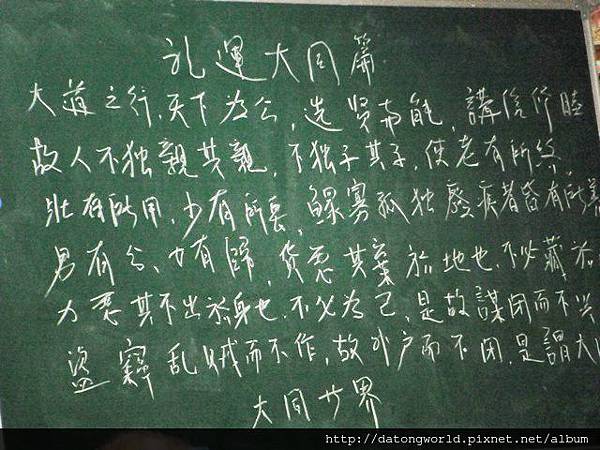 礼運大同篇
大道之行,天下為公,选贤与能,講信修睦
故人不独親其親,不独子其子,使老有所终,
壯有所用,少有所長,鳏寡孤独廢疾者皆有所养
男有分,女有歸,货恶其棄於地也,不必藏於
力恶其不出於身也,不必為己,是故謀闭而不兴
盜竊乱贼而不作,故外户而不闭,是謂大
大同世界
http://datongworld.pixnet.net/album